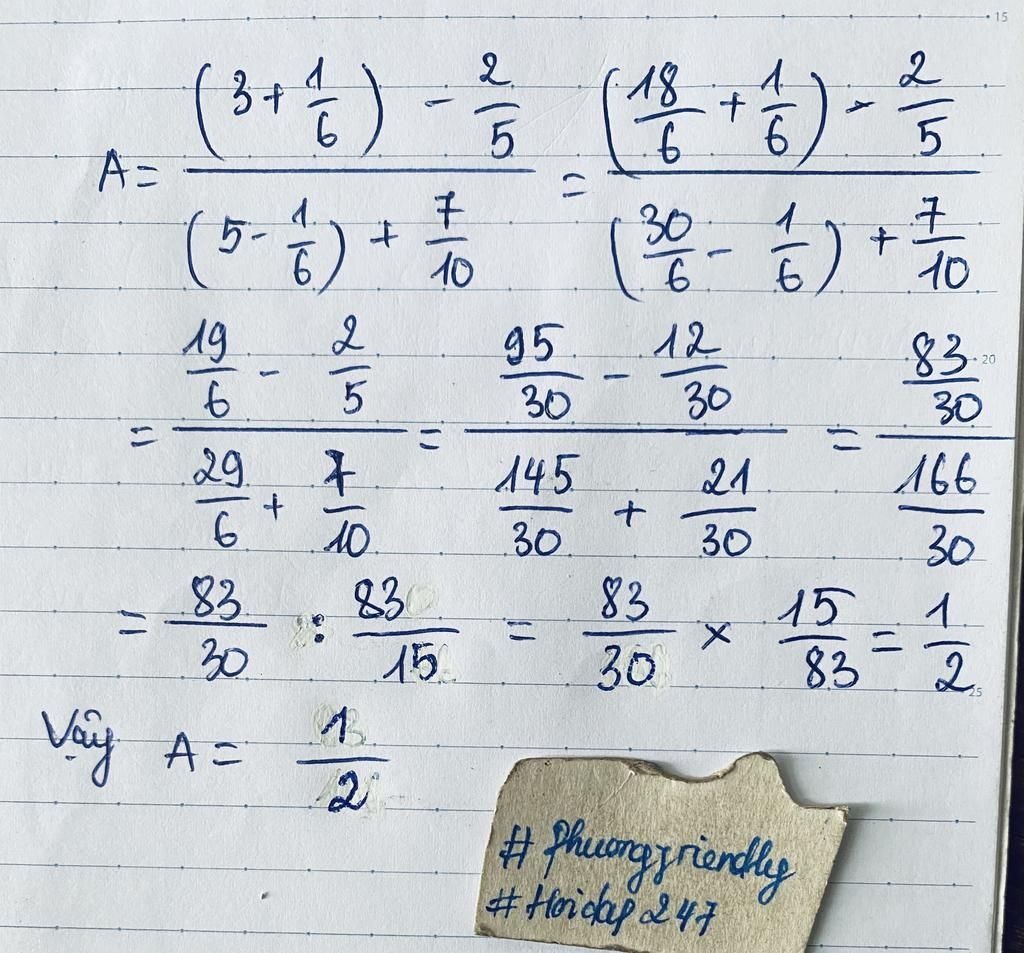 15
A = ((3 + 1/6) - 2/5) / ((5 - 1/6) + 7/10) = ((18/6 + 1/6) - 2/5) / ((30/6 - 1/6) + 7/10)
= (19/6 - 2/5) / (29/6 + 7/10) = (95/30 - 12/30) / (145/30 + 21/30) = (83/30) / (166/30)
20
= 83/30 : 83/15 = 83/30 × 15/83 = 1/2
25
Vậy A = 1/2
# phuongfriendly
# Hoidap 247